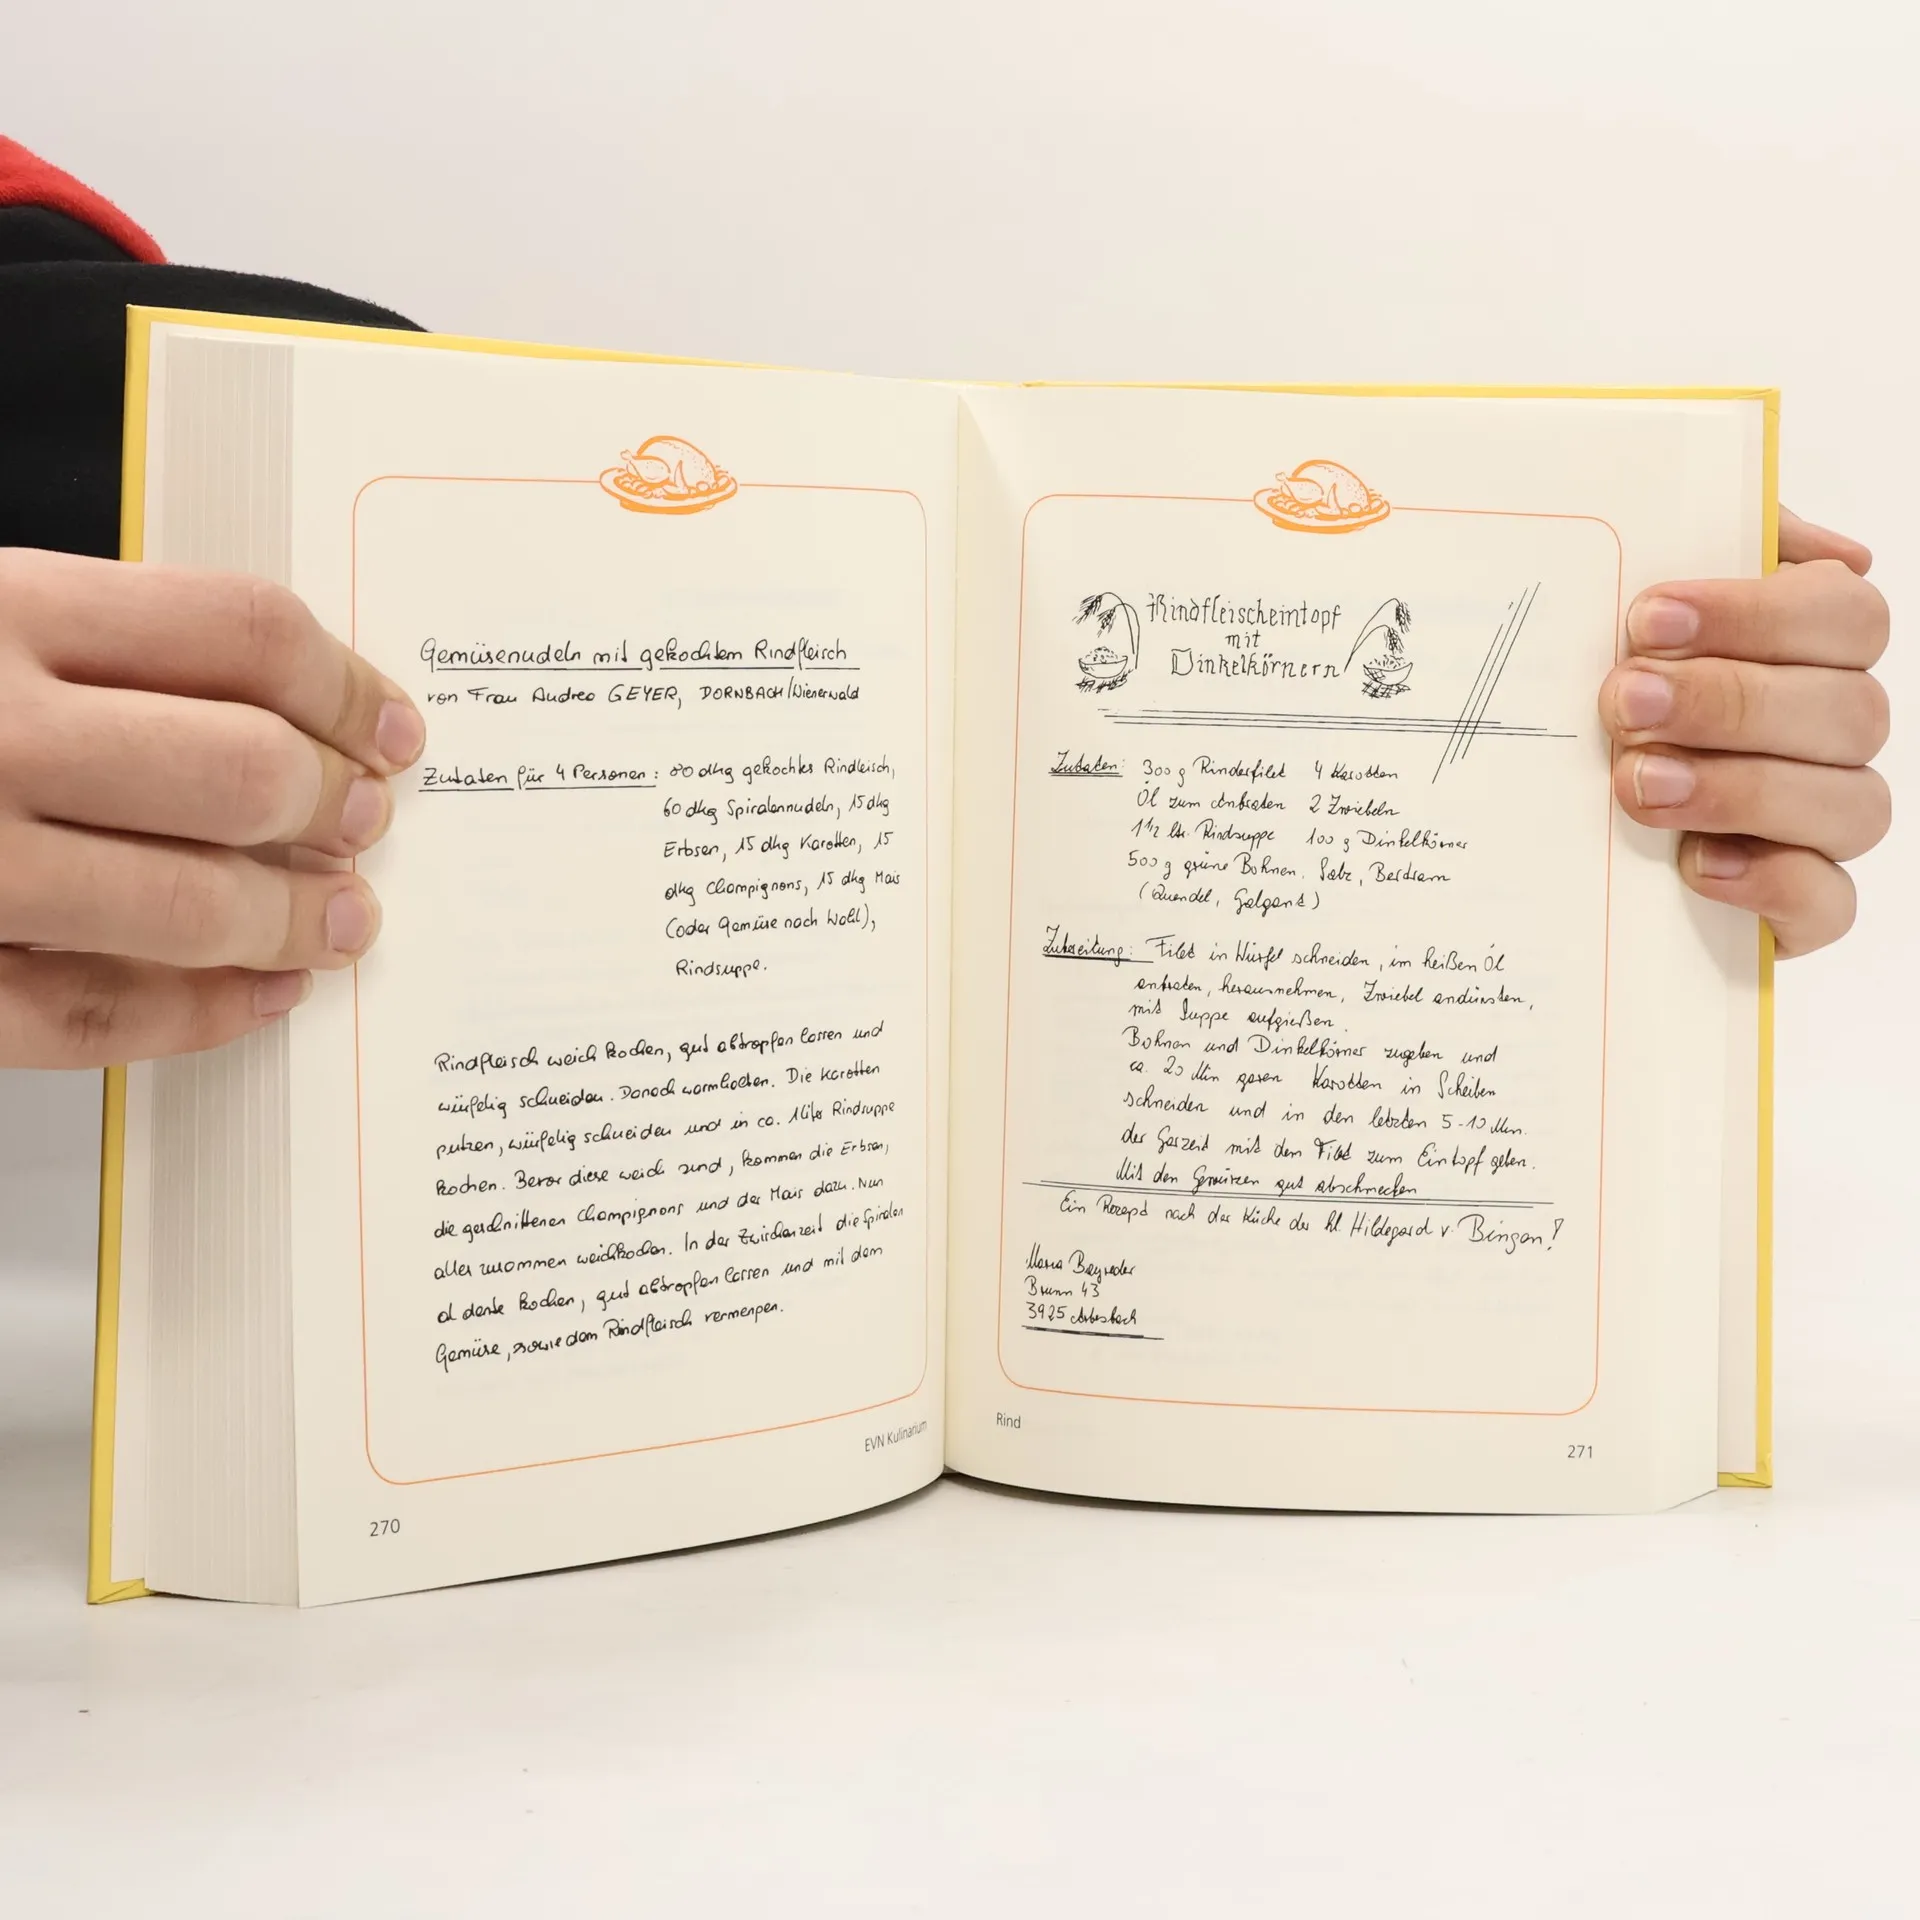 Gemüsenudeln mit gekochtem Rindfleisch
von Frau Andrea GEYER, DORNBACH/Wienerwald
Zutaten für 4 Personen: dkg gekochtes Rindfleisch,
60 dkg Spiralennudeln, 15 dkg
Erbsen, 15 dkg Karotten, 15
dkg Champignons, 15 dkg Mais
(oder Gemüse nach Wahl),
Rindsuppe.
Rindfleisch weich kochen, gut abtropfen lassen und
würfelig schneiden. Danach warmhalten. Die Karotten
putzen, würfelig schneiden und in ca. 1 liter Rindsuppe
kochen. Bevor diese weich sind, kommen die Erbsen,
die geschnittenen Champignons und der Mais dazu. Nun
alles zusammen weichkochen. In der Zwischenzeit die Spiralen
al dente kochen, gut abtropfen lassen und mit dem
Gemüse, sowie dem Rindfleisch vermengen.
EVN Kulinarium
270
Rindfleischeintopf
mit
Dinkelkörnern
Zutaten: 300 g Rinderfilet 4 Karotten
Öl zum Anbraten 2 Zwiebeln
1 1/2 ltr. Rindsuppe 100 g Dinkelkörner
500 g grüne Bohnen, Salz, Bertram
(Quendel, Galgant)
Zubereitung: Filet in Würfel schneiden, im heißen Öl
anbraten, herausnehmen, Zwiebel andünsten,
mit Suppe aufgießen.
Bohnen und Dinkelkörner zugeben und
ca. 20 Min garen Karotten in Scheiben
schneiden und in den letzten 5-10 Min.
der Garzeit mit dem Filet zum Eintopf geben.
Mit den Gewürzen gut abschmecken
Ein Rezept nach der Küche der hl. Hildegard v. Bingen!
Maria Bayreder
Brunn 43
3925 Arbesbach
Rind
271